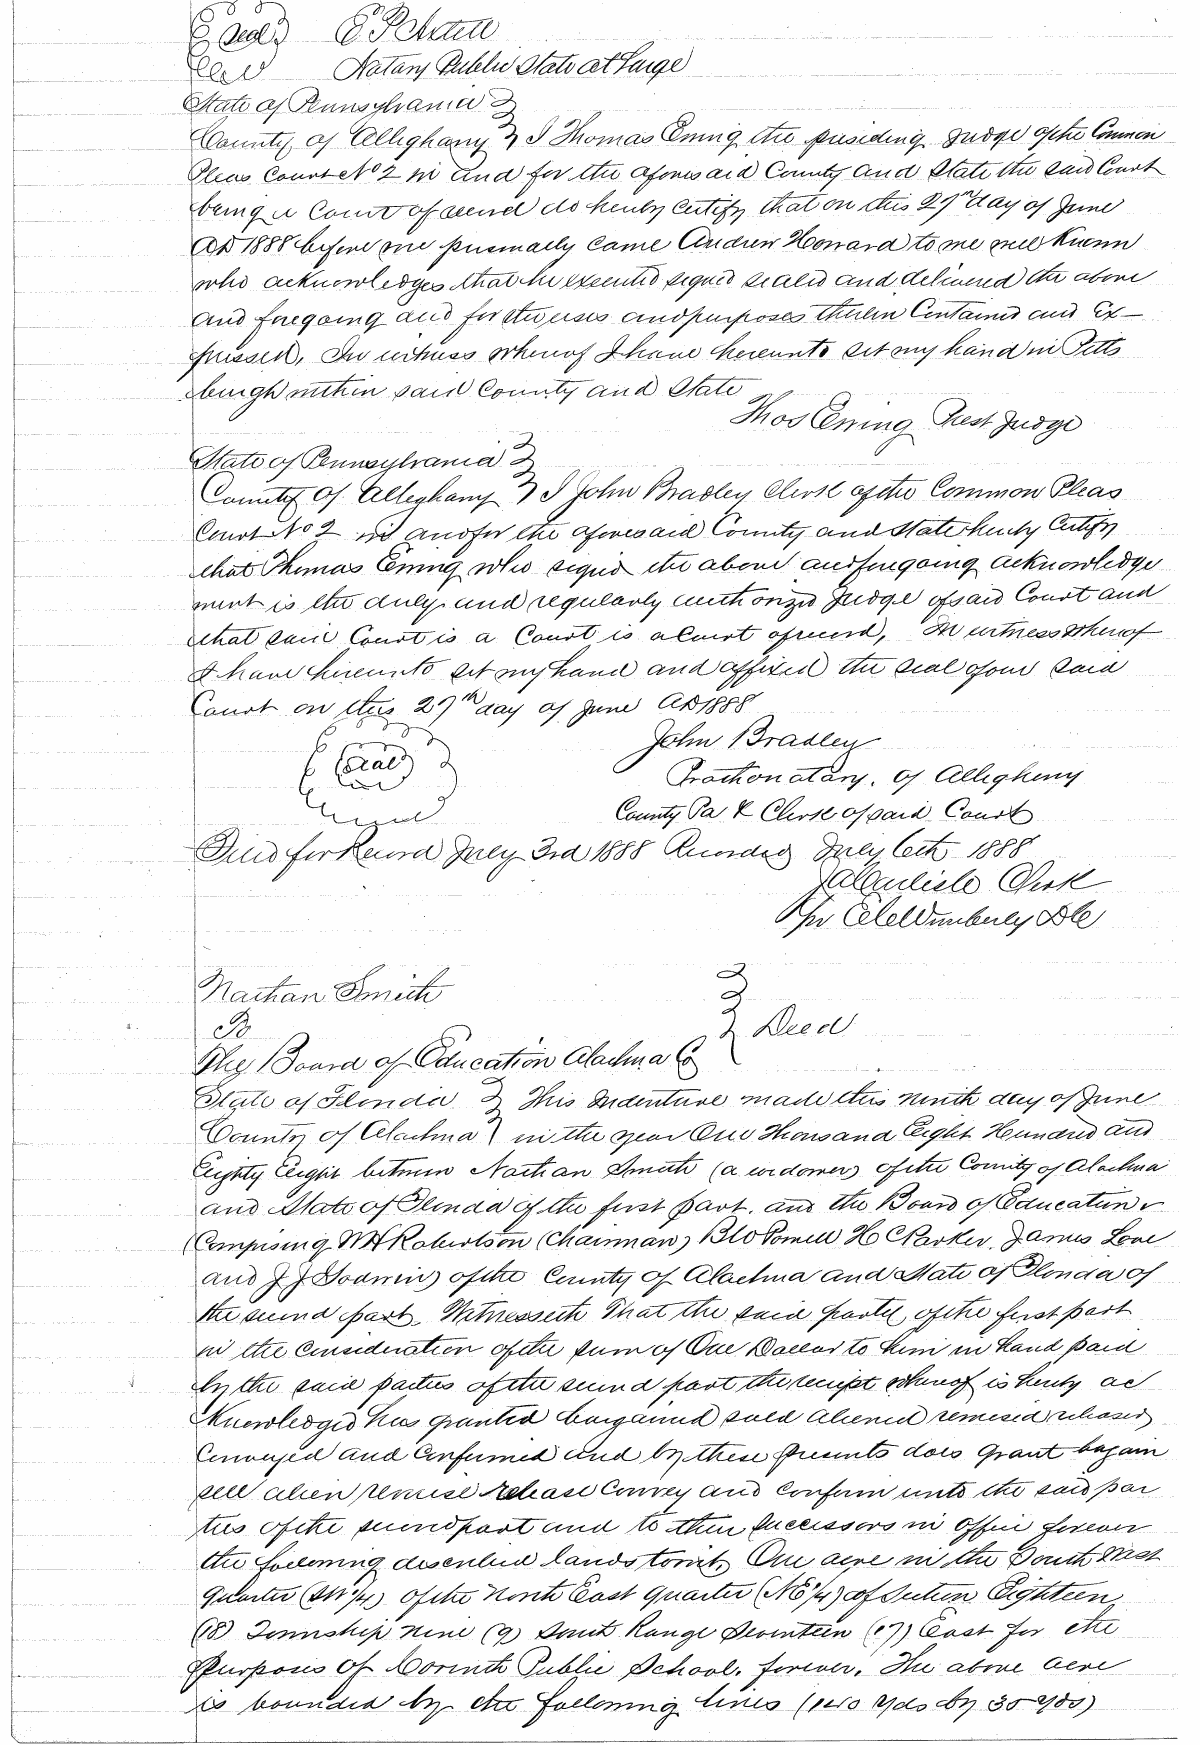 Seal
Notary Public State at Large
State of Pennsylvania
County of Alleghany I Thomas Ewing the presiding Judge of the Common
Pleas Court No 2 in and for the aforesaid County and State the said Court
being a Court of record do hereby certify that on this 29th day of June
AD 1888 before me personally came Andrew Howard to me well Known
who acknowledges that he executed signed sealed and delivered the above
and foregoing and for the uses and purposes therein Contained and Ex-
pressed. In witness whereof I have hereunto set my hand in Pitts
burgh within said County and State
Thos Ewing Prest Judge
State of Pennsylvania
County of Alleghany I John Bradley Clerk of the Common Pleas
Court No 2 in and for the aforesaid County and State hereby Certify
that Thomas Ewing who signed the above and foregoing acknowledge
ment is the duly and regularly authorized Judge of said Court and
that said Court is a Court is a Court of record, In witness whereof
I have hereunto set my hand and affixed the seal of our said
Court on this 29th day of June AD 1888
John Bradley
Seal
Prothonatary. of Allegheny
County Pa & Clerk of said Court
Filed for Record July 3rd 1888 Recorded July 6th 1888
Carlisle Clerk
Per Wimberly DC
Nathan Smith
To
Deed
The Board of Education Alachua Co
State of Florida This Indenture made this ninth day of June
County of Alachua in the year One Thousand Eight Hundred and
Eighty Eight between Nathan Smith (a widower) of the County of Alachua
and State of Florida of the first part. and the Board of Education
Comprising W H Robertson (Chairman) Powell H C Parker, James Love
and J J Godwin) of the County of Alachua and State of Florida of
the second part. Witnesseth That the said party of the first part
in the Consideration of the sum of One Dollar to him in hand paid
by the said parties of the second part the receipt whereof is hereby ac
Knowledged has granted bargained sold aliened remised released
Conveyed and Confirmed and by these presents does grant bagain
sell alien remise release Convey and Confirm unto the said par
ties of the second part and to their successors in office forever
the following described lands towit, One acre in the South West
Quarter (SW 1/4) of the North East Quarter (NE 1/4) of Section Eighteen
(18) Township nine (9) South Range Seventeen (17) East for the
Purposes of Corinth Public School. forever. The above acre
is bounded by the following lines (140 yds by 35 yds)